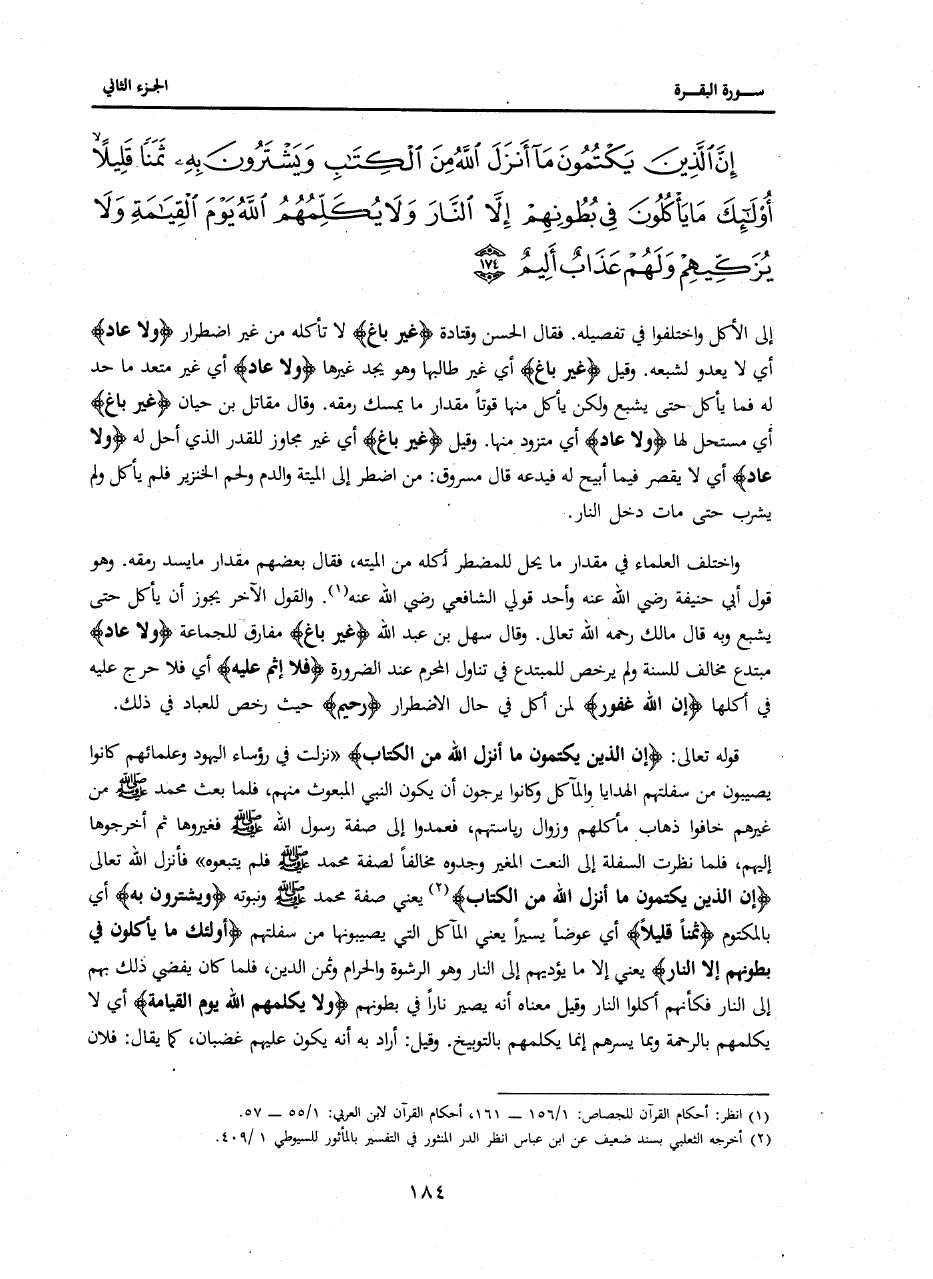 سورة البقرة
الجزء الثاني
إِنَّ ٱلَّذِينَ يَكْتُمُونَ مَآ أَنزَلَ ٱللَّهُ مِنَ ٱلْكِتَٰبِ وَيَشْتَرُونَ بِهِۦ ثَمَنًا قَلِيلًا ۙ
أُو۟لَٰٓئِكَ مَا يَأْكُلُونَ فِى بُطُونِهِمْ إِلَّا ٱلنَّارَ وَلَا يُكَلِّمُهُمُ ٱللَّهُ يَوْمَ ٱلْقِيَٰمَةِ وَلَا
يُزَكِّيهِمْ وَلَهُمْ عَذَابٌ أَلِيمٌ ١٧٤
إلى الأكل واختلفوا في تفصيله. فقال الحسن وقتادة ﴿غير باغ﴾ لا تأكله من غير اضطرار ﴿ولا عاد﴾
أي لا يعدو لشبعه. وقيل ﴿غير باغ﴾ أي غير طالبها وهو يجد غيرها ﴿ولا عاد﴾ أي غير متعد ما حد
له فما يأكل حتى يشبع ولكن يأكل منها قوتاً مقدار ما يمسك رمقه. وقال مقاتل بن حيان ﴿غير باغ﴾
أي مستحل لها ﴿ولا عاد﴾ أي متزود منها. وقيل ﴿غير باغ﴾ أي غير مجاوز للقدر الذي أحل له ﴿ولا
عاد﴾ أي لا يقصر فيما أبيح له فيدعه قال مسروق: من اضطر إلى الميتة والدم ولحم الخنزير فلم يأكل ولم
يشرب حتى مات دخل النار.
واختلف العلماء في مقدار ما يحل للمضطر أكله من الميته، فقال بعضهم مقدار مايسد رمقه. وهو
قول أبي حنيفة رضي الله عنه وأحد قولي الشافعي رضي الله عنه(١). والقول الآخر يجوز أن يأكل حتى
يشبع وبه قال مالك رحمه الله تعالى. وقال سهل بن عبد الله ﴿غير باغ﴾ مفارق للجماعة ﴿ولا عاد﴾
مبتدع مخالف للسنة ولم يرخص للمبتدع في تناول المحرم عند الضرورة ﴿فلا إثم عليه﴾ أي فلا حرج عليه
في أكلها ﴿إن الله غفور﴾ لمن أكل في حال الاضطرار ﴿رحيم﴾ حيث رخص للعباد في ذلك.
قوله تعالى: ﴿إن الذين يكتمون ما أنزل الله من الكتاب﴾ «نزلت في رؤساء اليهود وعلمائهم كانوا
يصيبون من سفلتهم الهدايا والمآكل وكانوا يرجون أن يكون النبي المبعوث منهم، فلما بعث محمد ﷺ من
غيرهم خافوا ذهاب مأكلهم وزوال رياستهم، فعمدوا إلى صفة رسول الله ﷺ فغيروها ثم أخرجوها
إليهم، فلما نظرت السفلة إلى النعت المغير وجدوه مخالفاً لصفة محمد ﷺ فلم يتبعوه» فأنزل الله تعالى
﴿إن الذين يكتمون ما أنزل الله من الكتاب﴾(٢) يعني صفة محمد ﷺ ونبوته ﴿ويشترون به﴾ أي
بالمكتوم ﴿ثمناً قليلاً﴾ أي عوضاً يسيراً يعني المآكل التي يصيبونها من سفلتهم ﴿أولئك ما يأكلون في
بطونهم إلا النار﴾ يعني إلا ما يؤديهم إلى النار وهو الرشوة والحرام وثمن الدين، فلما كان يفضي ذلك بهم
إلى النار فكأنهم أكلوا النار وقيل معناه أنه يصير ناراً في بطونهم ﴿ولا يكلمهم الله يوم القيامة﴾ أي لا
يكلمهم بالرحمة وبما يسرهم إنما يكلمهم بالتوبيخ. وقيل: أراد به أنه يكون عليهم غضبان، كما يقال: فلان
(١) انظر: أحكام القرآن للجصاص: ١٥٦/١ ــ ١٦١، أحكام القرآن لابن العربي: ٥٥/١ ــ ٥٧.
(٢) أخرجه الثعلبي بسند ضعيف عن ابن عباس انظر الدر المنثور في التفسير بالمأثور للسيوطي ٤٠٩/١.
١٨٤